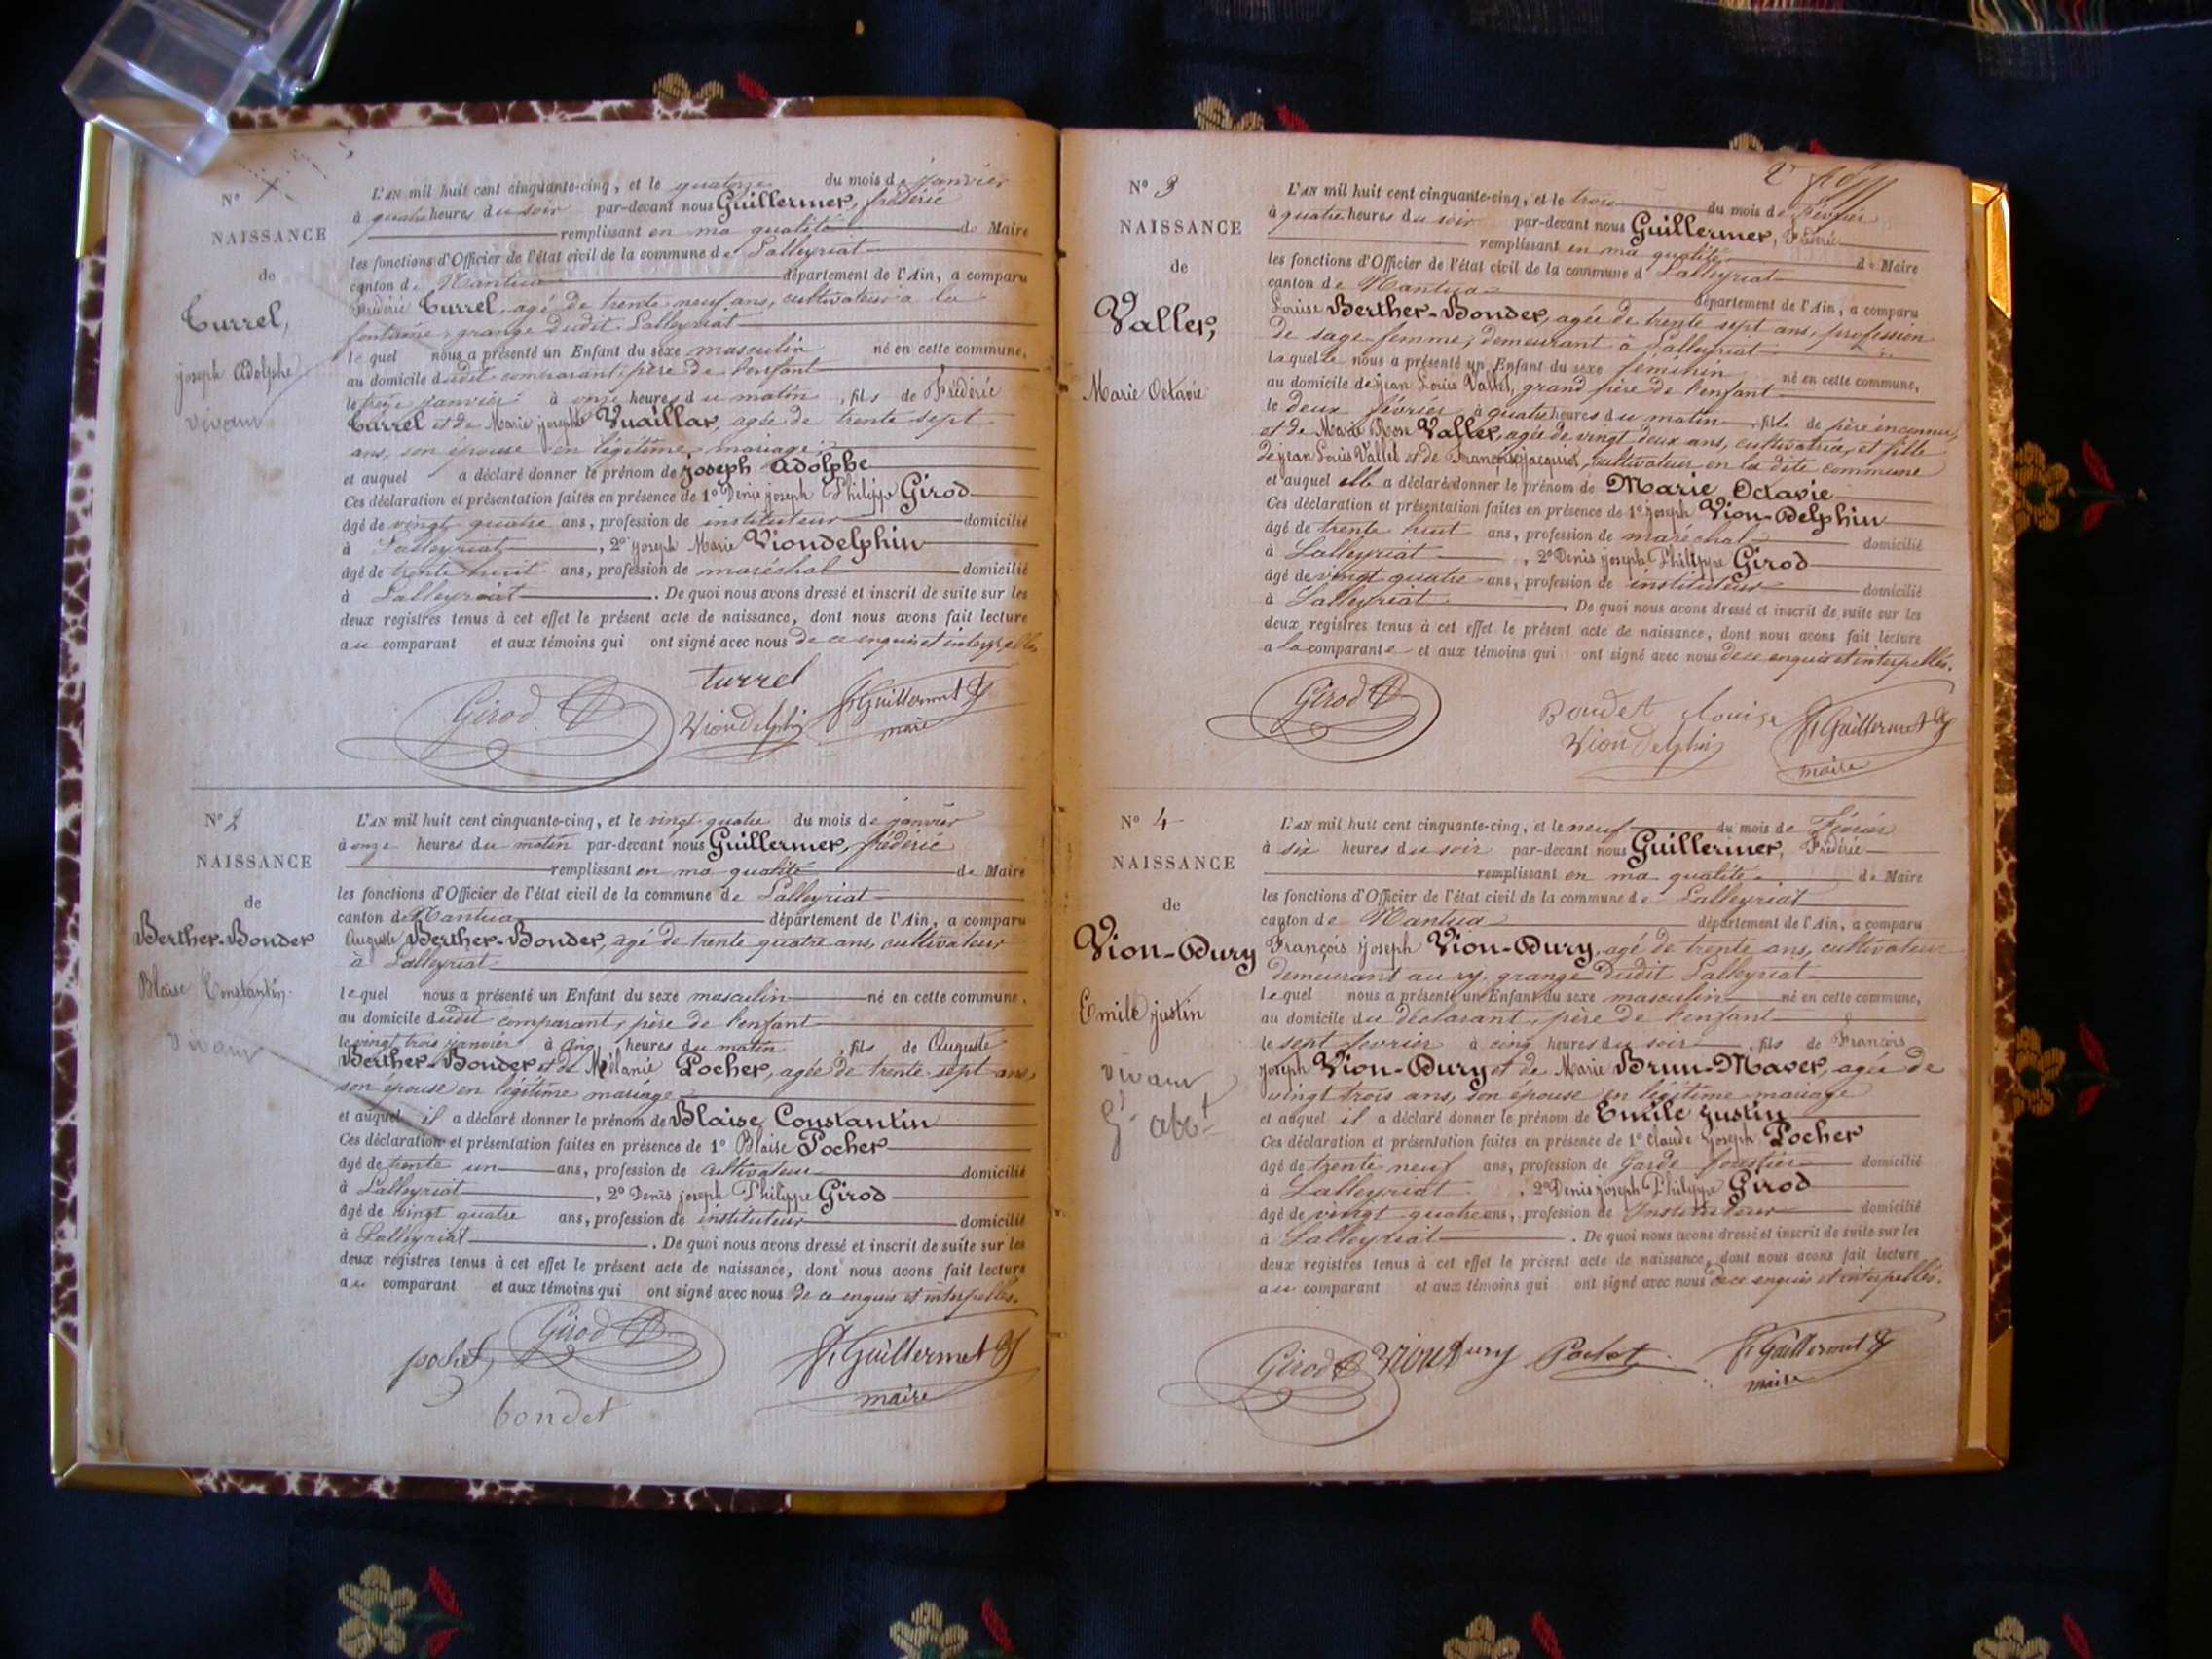 N° 1
NAISSANCE
de
Turrel,
joseph Adolphe
vivant
L'AN mil huit cent cinquante-cinq, et le quatorze du mois de janvier
à quatre heures du soir par-devant nous Guillermet, frédéric
remplissant en ma qualité de Maire
les fonctions d'Officier de l'état civil de la commune de Lalleyriat
canton de Nantua département de l'Ain, a comparu
Frédéric Turrel, agé de trente neuf ans, cultivateur à la
fontaine, grange dudit Lalleyriat
lequel nous a présenté un Enfant du sexe masculin né en cette commune,
au domicile dudit comparant, père de l'enfant
le treize janvier à onze heures du matin, fils de Frédéric
Turrel et de Marie josephte Vuaillat, agée de trente sept
ans, son épouse en légitime mariage;
et auquel a déclaré donner le prénom de Joseph Adolphe
Ces déclaration et présentation faites en présence de 1° Denis joseph Philippe Girod
âgé de vingt quatre ans, profession de instituteur domicilié
à Lalleyriat, 2° joseph Marie Viondelphin
âgé de trente huit ans, profession de maréchal domicilié
à Lalleyriat. De quoi nous avons dressé et inscrit de suite sur les
deux registres tenus à cet effet le présent acte de naissance, dont nous avons fait lecture
au comparant et aux témoins qui ont signé avec nous de ce enquis et interpellés
turrel
Girod D
Viondelphin
F. Guillermet
maire
N° 2
NAISSANCE
de
Berthet-Bondet
Blaise Constantin
vivant
L'AN mil huit cent cinquante-cinq, et le vingt quatre du mois de janvier
à onze heures du matin par-devant nous Guillermet, frédéric
remplissant en ma qualité de Maire
les fonctions d'Officier de l'état civil de la commune de Lalleyriat
canton de Nantua département de l'Ain, a comparu
Auguste Berthet-Bondet, agé de trente quatre ans, cultivateur
à Lalleyriat
lequel nous a présenté un Enfant du sexe masculin né en cette commune,
au domicile dudit comparant, père de l'enfant
le vingt trois janvier à cinq heures du matin, fils de Auguste
Berthet-Bondet et de Mélanie Pochet, agée de trente sept ans,
son épouse en légitime mariage
et auquel il a déclaré donner le prénom de Blaise Constantin
Ces déclaration et présentation faites en présence de 1° Blaise Pochet
âgé de trente un ans, profession de cultivateur domicilié
à Lalleyriat, 2° Denis joseph Philippe Girod
âgé de vingt quatre ans, profession de instituteur domicilié
à Lalleyriat. De quoi nous avons dressé et inscrit de suite sur les
deux registres tenus à cet effet le présent acte de naissance, dont nous avons fait lecture
au comparant et aux témoins qui ont signé avec nous de ce enquis et interpellés.
pochet
Girod D
F. Guillermet
maire
bondet
2e
N° 3
NAISSANCE
de
Vallet,
Marie Octavie
L'AN mil huit cent cinquante-cinq, et le trois du mois de février
à quatre heures du soir par-devant nous Guillermet, Frédéric
remplissant en ma qualité de Maire
les fonctions d'Officier de l'état civil de la commune d Lalleyriat
canton de Nantua département de l'Ain, a comparu
Louise Berthet-Bondet, agée de trente sept ans, profession
de sage-femme, demeurant à Lalleyriat
laquelle nous a présenté un Enfant du sexe féminin né en cette commune,
au domicile de jean Louis Vallet, grand père de l'enfant
le deux février à quatre heures du matin, fille de père inconnu,
et de Marie Rose Vallet, agée de vingt deux ans, cultivatrice, et fille
de jean Louis Vallet et de Françoise jacquiot, cultivateur en la dite commune
et auquel elle a déclaré donner le prénom de Marie Octavie
Ces déclaration et présentation faites en présence de 1° joseph Vion-Delphin
âgé de trente huit ans, profession de maréchal domicilié
à Lalleyriat, 2° Denis joseph Philippe Girod
âgé de vingt quatre ans, profession de instituteur domicilié
à Lalleyriat. De quoi nous avons dressé et inscrit de suite sur les
deux registres tenus à cet effet le présent acte de naissance, dont nous avons fait lecture
a la comparante et aux témoins qui ont signé avec nous de ce enquis et interpellés.
Girod D
Bondet louise
Viondelphin
F. Guillermet
maire
N° 4
NAISSANCE
de
Vion-Dury
Emile justin
vivant
L'AN mil huit cent cinquante-cinq, et le neuf du mois de Février
à six heures du soir par-devant nous Guillermet, Frédéric
remplissant en ma qualité de Maire
les fonctions d'Officier de l'état civil de la commune de Lalleyriat
canton de Nantua département de l'Ain, a comparu
François joseph Vion-Dury, agé de trente ans, cultivateur
demeurant au ry, grange dudit Lalleyriat
lequel nous a présenté un Enfant du sexe masculin né en cette commune,
au domicile du déclarant, père de l'enfant
le sept fevrier à cinq heures du soir, fils de François
joseph Vion-Dury et de Marie Brun-Mavet, agée de
vingt trois ans, son épouse en légitime mariage
et auquel il a déclaré donner le prénom de Emile Justin
Ces déclaration et présentation faites en présence de 1° Claude Joseph Pochet
âgé de trente neuf ans, profession de Garde forestier domicilié
à Lalleyriat, 2° Denis joseph Philippe Girod
âgé de vingt quatre ans, profession de Instituteur domicilié
à Lalleyriat. De quoi nous avons dressé et inscrit de suite sur les
deux registres tenus à cet effet le présent acte de naissance, dont nous avons fait lecture
au comparant et aux témoins qui ont signé avec nous de ce enquis et interpellés.
Girod D
Vion Dury
Pochet
F. Guillermet
maire